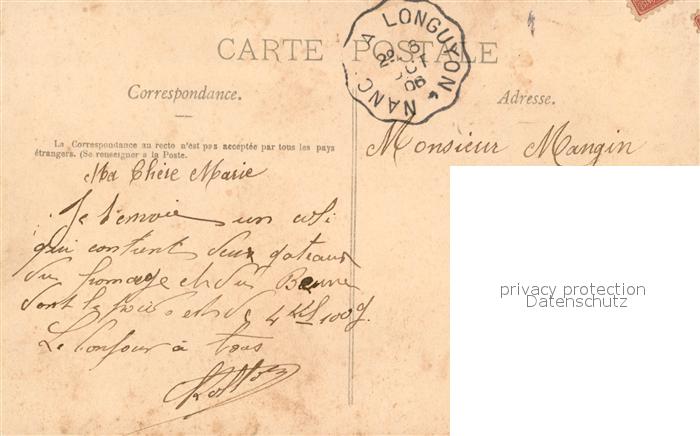 CARTE POSTALE
NANC. A LONGUYON
06
Correspondance.
Adresse.
La Correspondance au recto n'est pas acceptée par tous les pays
étrangers. (Se renseigner a la Poste.
Monsieur Mangin
Ma Chère Marie
Je t'envoie un coli
qui contient deux gateaux
du fromage et du Beurre
dont le poids est de 4 Kil 100 g.
Le bonjour à tous
privacy protection
Datenschutz